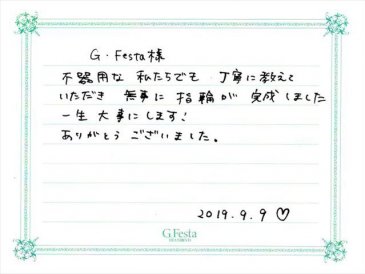 G・Festa様
不器用な 私たちでも 丁寧に教えて
いただき 無事に 指輪が 完成しました
一生 大事にします！
ありがとう ございました。
2019.9.9 ♡
G.Festa